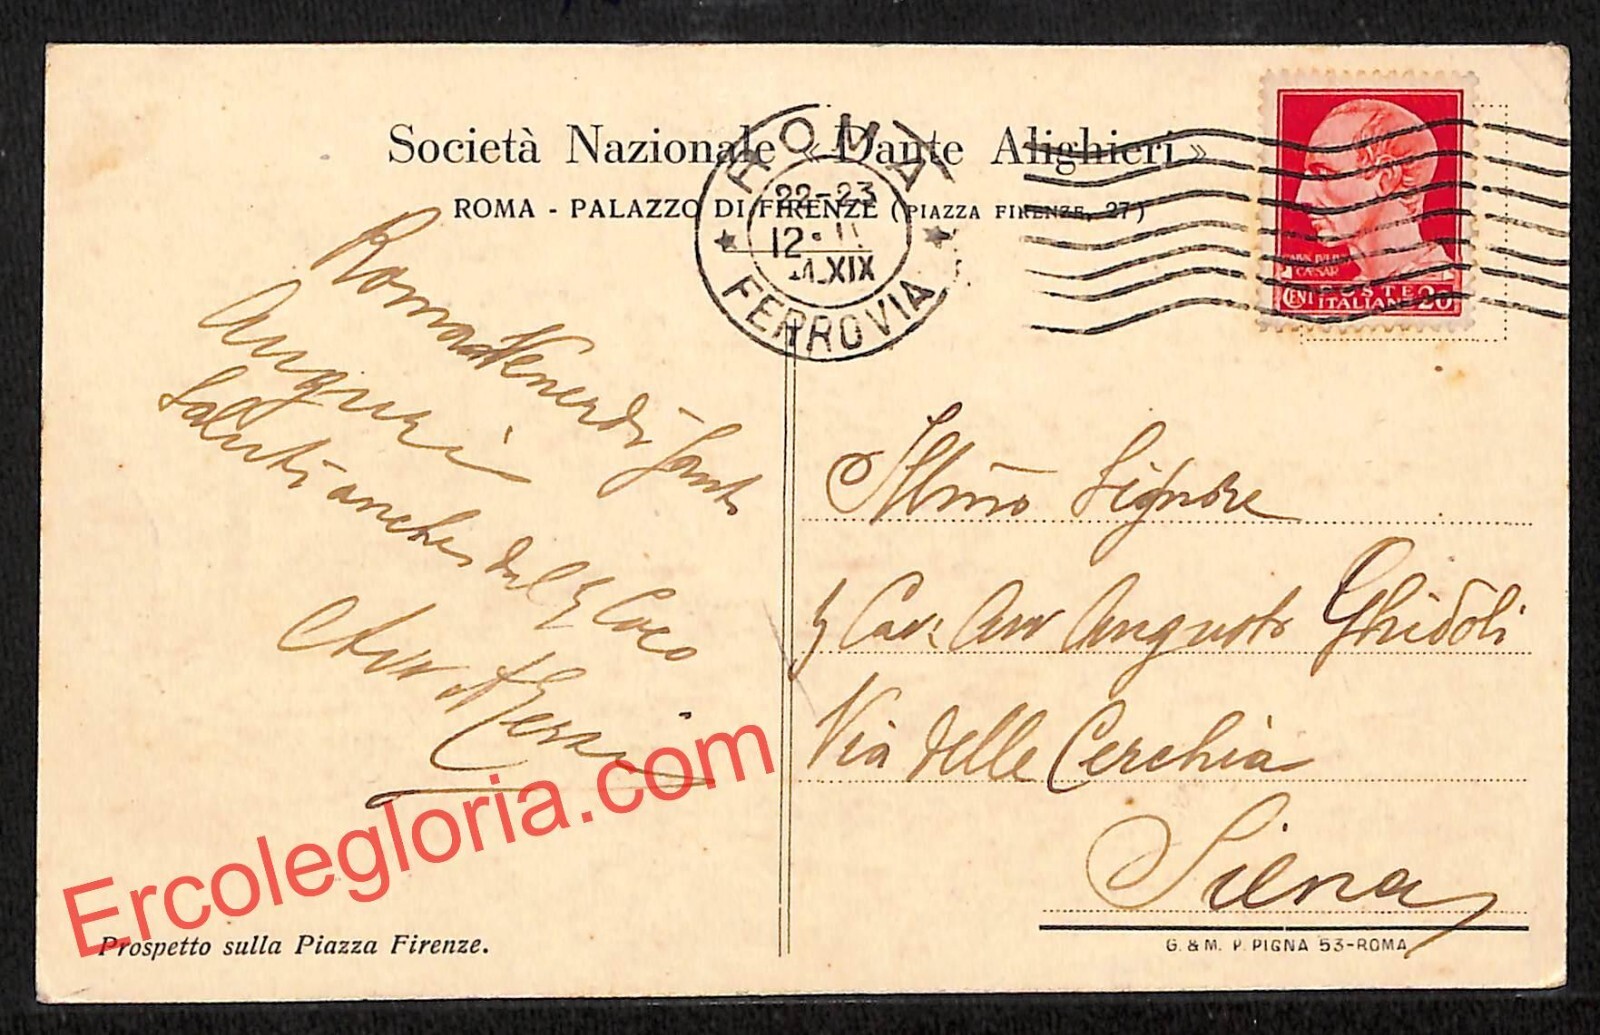 Società Nazionale « Dante Alighieri »
ROMA - PALAZZO DI FIRENZE (PIAZZA FIRENZE, 27)
ROMA
22-23
12
XIX
FERROVIA
CAESAR
CENT POSTE 20
ITALIANE
Roma Venerdì Santo
Auguri
Saluti anche del
Illmo Signore
Cav: Avv Augusto Ghidoli
Via delle Cerchia
Siena
Ercolegloria.com
Prospetto sulla Piazza Firenze.
G. & M. P. PIGNA 53-ROMA